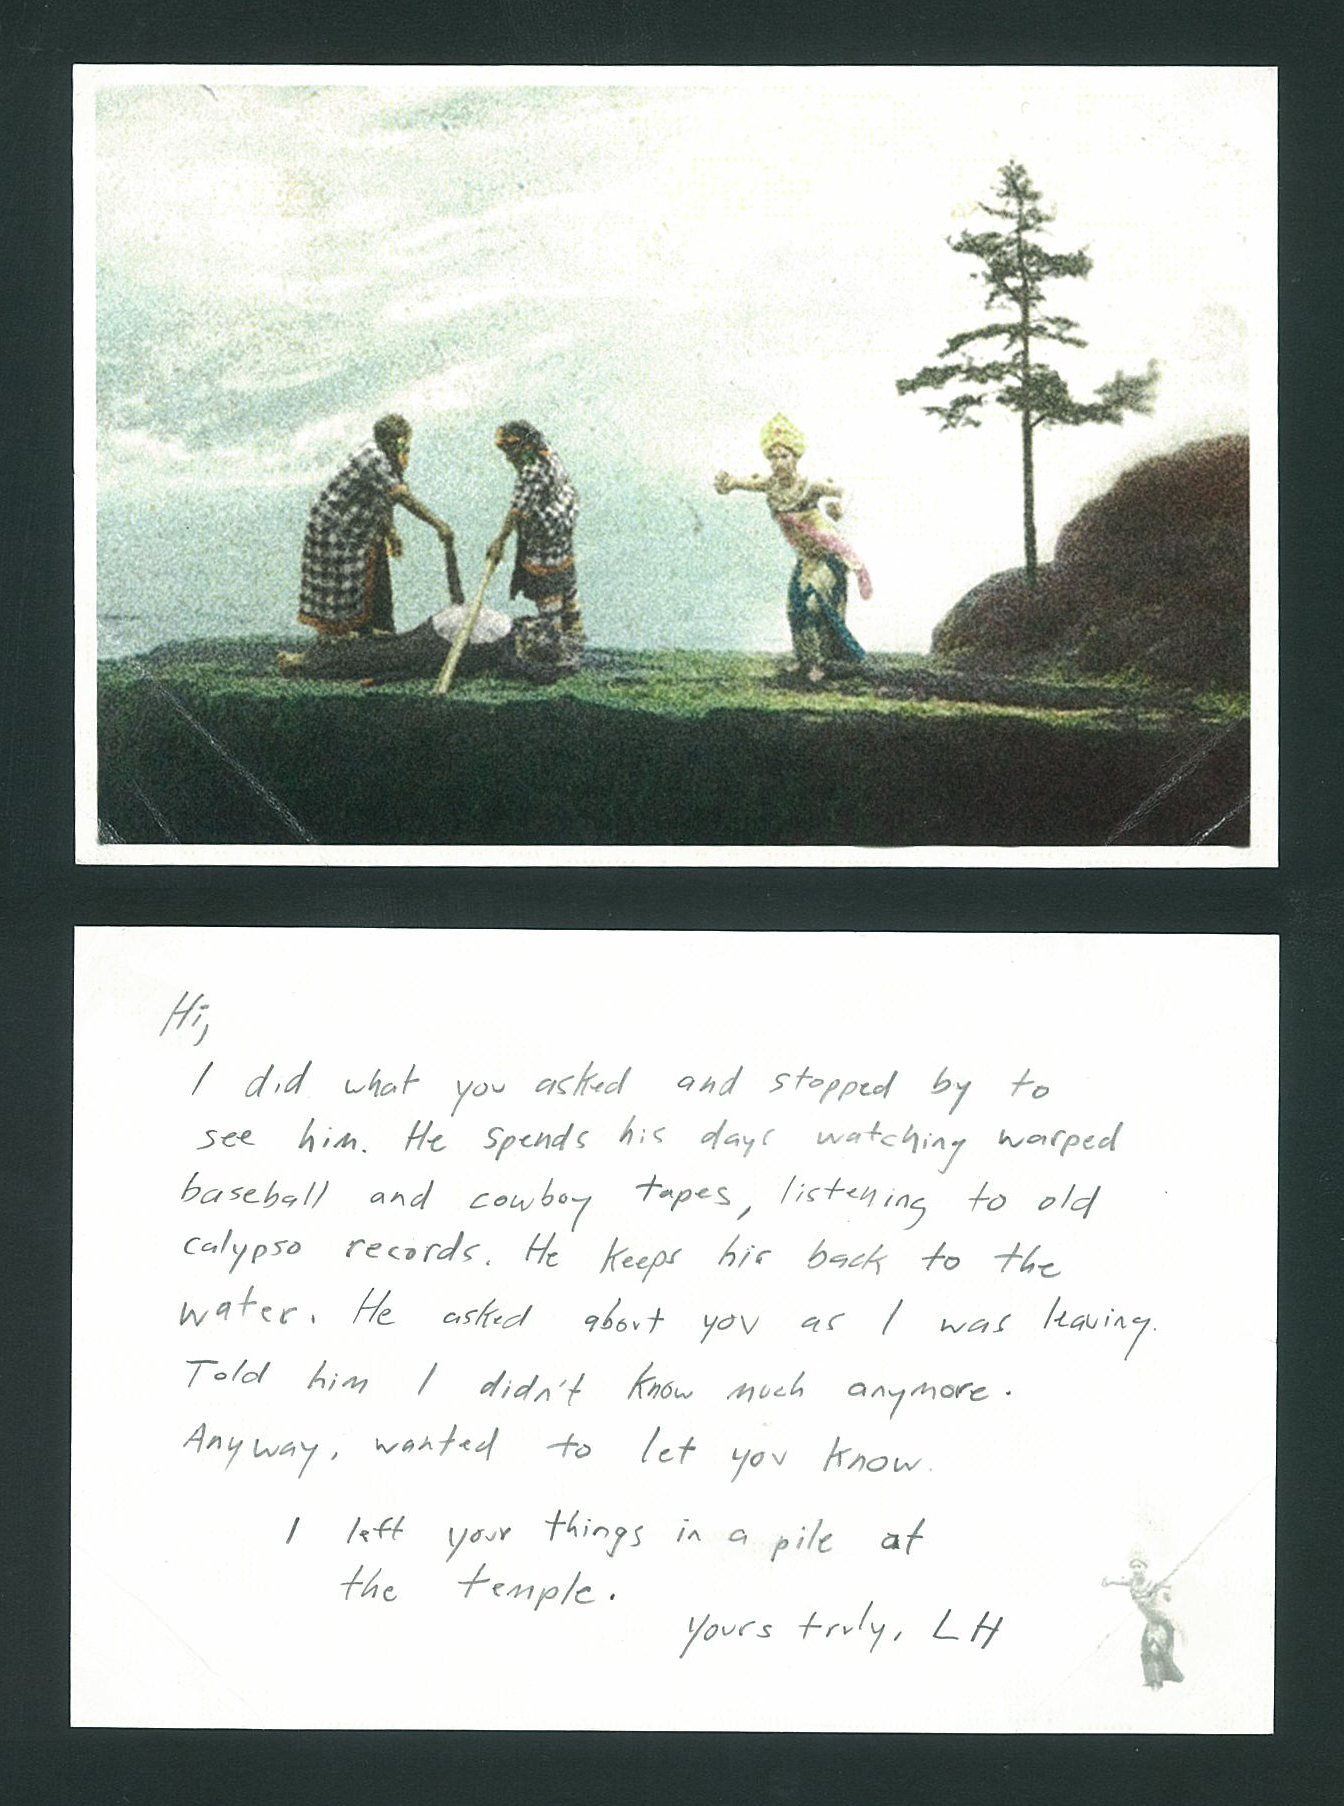 Hi,
I did what you asked and stopped by to
see him. He spends his days watching warped
baseball and cowboy tapes, listening to old
calypso records. He keeps his back to the
water. He asked about you as I was leaving.
Told him I didn't know much anymore.
Anyway, wanted to let you know.
I left your things in a pile at
the temple.
Yours truly, LH